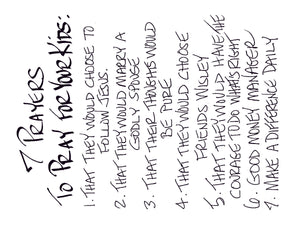 7 PRAYERS
TO PRAY FOR YOUR KIDS:
1. THAT THEY WOULD CHOOSE TO
FOLLOW JESUS.
2. THAT THEY WOULD MARRY A
GODLY SPOUSE
3. THAT THEIR THOUGHTS WOULD
BE PURE
4. THAT THEY WOULD CHOOSE
FRIENDS WISLEY
5. THAT THEY WOULD HAVE THE
COURAGE TO DO WHAT'S RIGHT
6. GOOD MONEY MANAGER
7. MAKE A DIFFERENCE DAILY